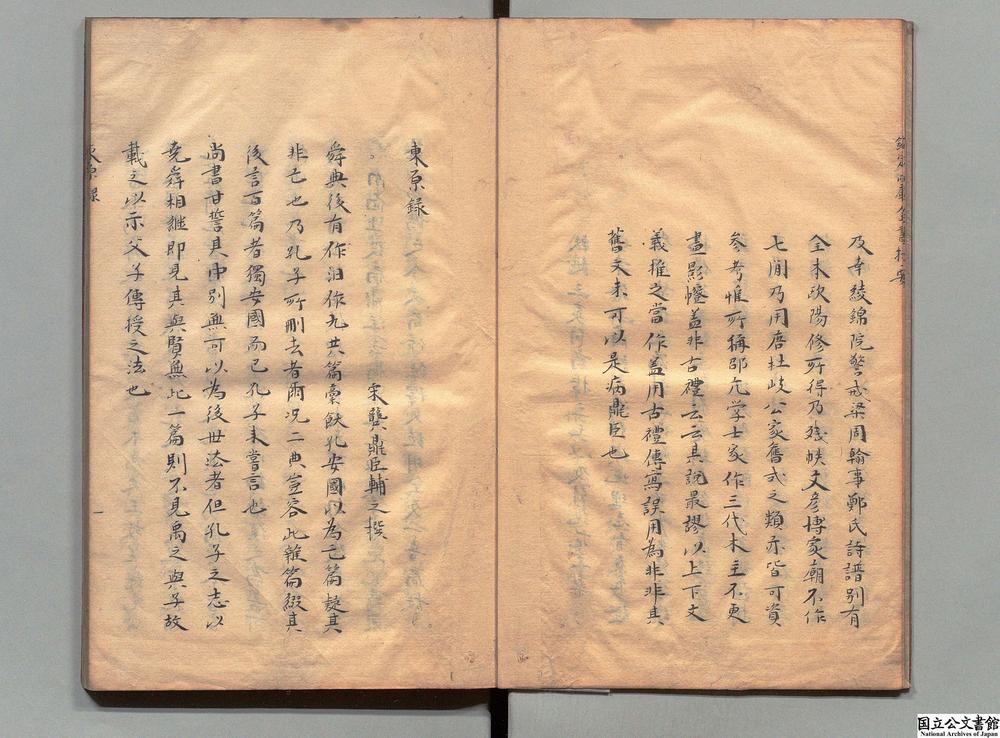 及李綾錦院警戒梁周翰事鄭氏詩譜別有
全本欧陽修所得乃殘帙文彦博家廟不作
七間乃用唐杜岐公家舊式之類亦皆可資
参考惟所稱邵亢学士家作三代木主不更
畫影幡蓋非古禮云云其說最謬以上下文
義推之當作蓋用古禮傳寫誤用為非非其
舊文未可以是病鼎臣也
東原録
宋龔鼎臣輔之撰
舜典後有作汨作九共篇槀飫孔安國以為亡篇疑其
非亡也乃孔子所刪去者爾况二典豈容此雜篇綴其
後言百篇者獨安國而已孔子未嘗言也
尚書甘誓其中別無可以為後世法者但孔子之志以
堯舜相継即見其與賢無此一篇則不見禹之與子故
載之以示父子傳授之法也
東原録
一
国立公文書館
National Archives of Japan